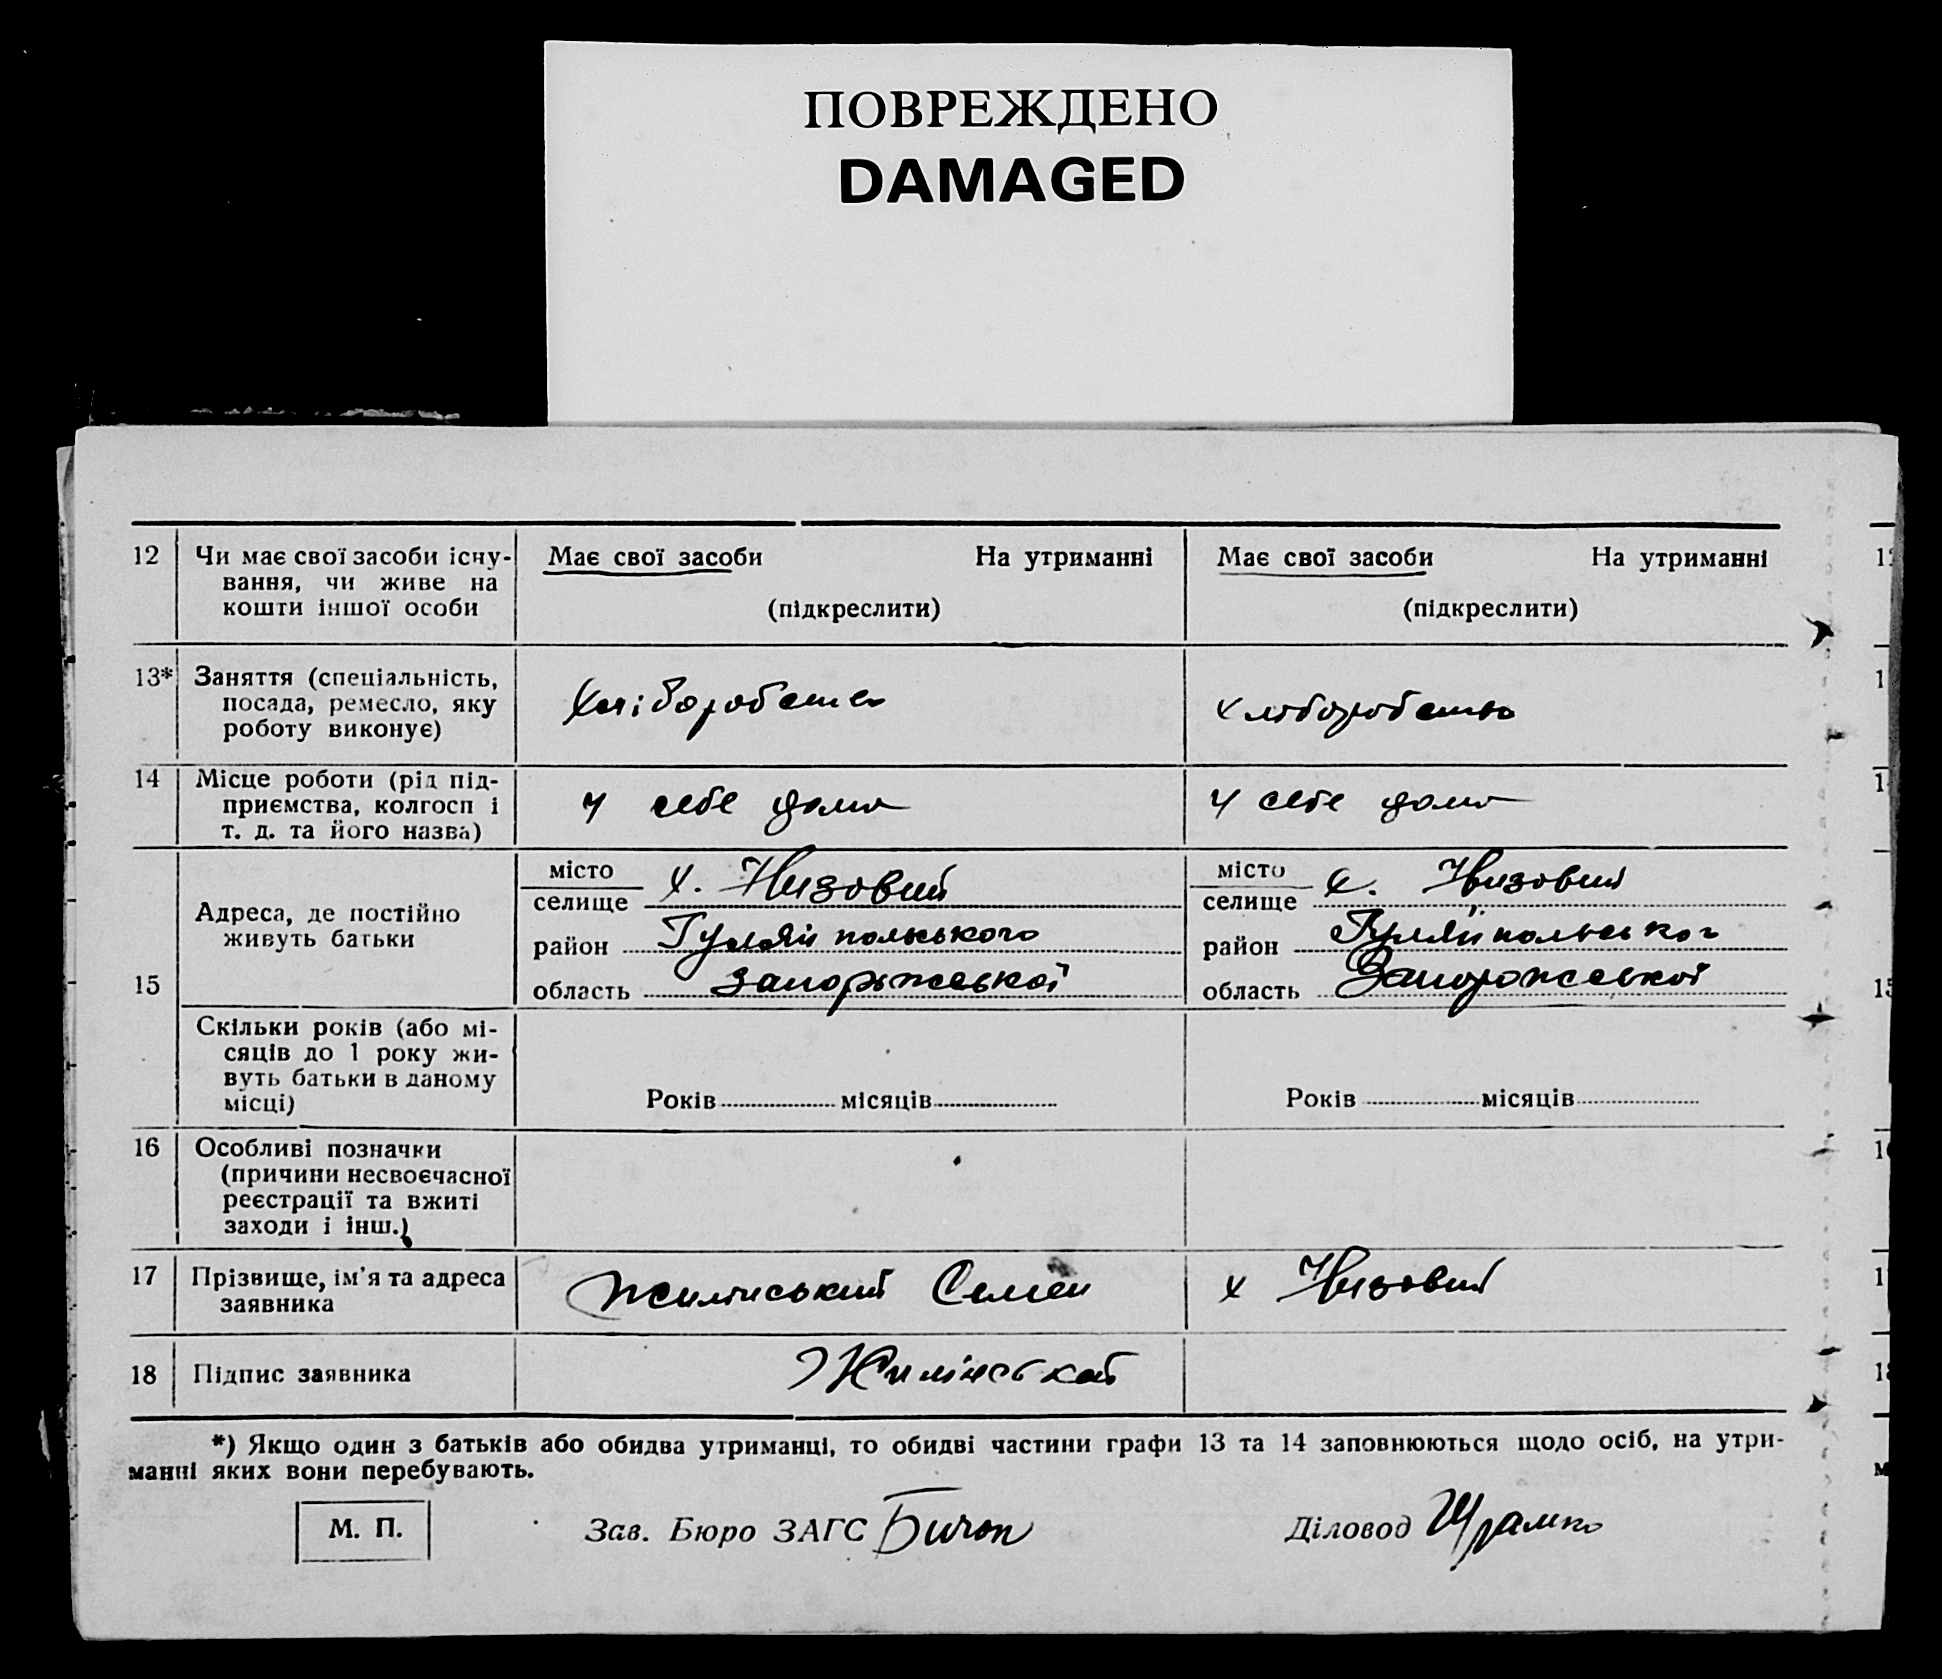 ПОВРЕЖДЕНО
DAMAGED
12 Чи має свої засоби існу-
вання, чи живе на
кошти іншої особи
Має свої засоби На утриманні
(підкреслити)
Має свої засоби На утриманні
(підкреслити)
13* Заняття (спеціальність,
посада, ремесло, яку
роботу виконує)
14 Місце роботи (рід під-
приємства, колгосп і
т. д. та його назва)
у себе дома
у себе дома
15 Адреса, де постійно
живуть батьки
місто
селище х. Низовий
район Гуляйпольського
область Запорожської
місто
селище х. Низовий
район
область Запорожської
Скільки років (або мі-
сяців до 1 року жи-
вуть батьки в даному
місці)
Років місяців
Років місяців
16 Особливі позначки
(причини несвоєчасної
реєстрації та вжиті
заходи і інш.)
17 Прізвище, ім'я та адреса
заявника
Семен
х Низовий
18 Підпис заявника
*) Якщо один з батьків або обидва утриманці, то обидві частини графи 13 та 14 заповнюються щодо осіб, на утри-
манні яких вони перебувають.
М. П.
Зав. Бюро ЗАГС
Діловод